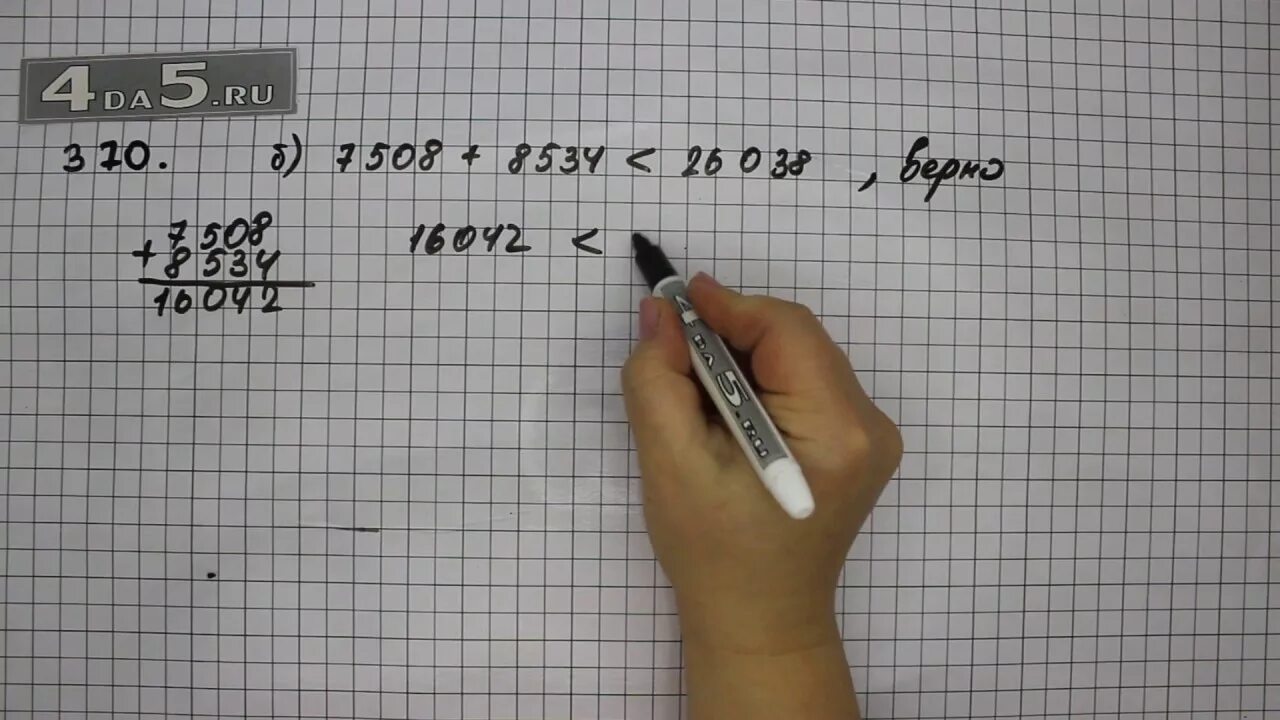 4DA5.RU
370. б) 7508 + 8534 < 26038, верно
7508
+ 8534
16042
16042 <
4DA5.RU